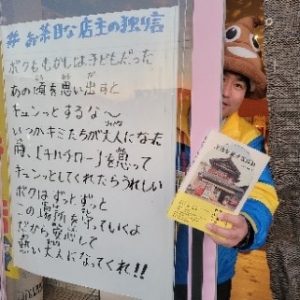 # お茶目な店主の独り言
ボクもむかしは子どもだった
あの頃を思い出すと
キュンッとするな〜
いつかキミたちが大人になった
時、「チハイロー」を思って
キュンッとしてくれたらうれしい
ボクはずっとずっと
この場所を守っていくよ
だから安心して
悪い大人になってくれ!!